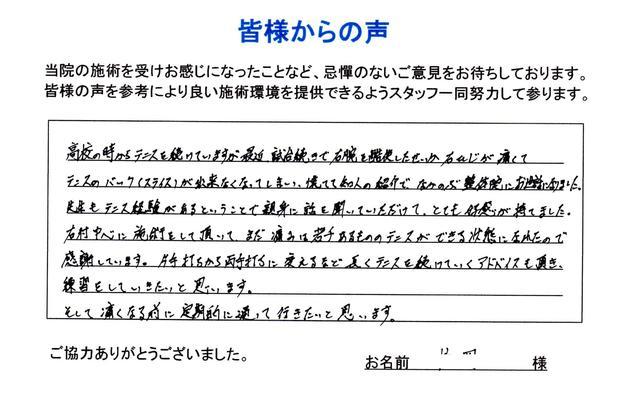 皆様からの声
当院の施術を受けお感じになったことなど、忌憚のないご意見をお待ちしております。
皆様の声を参考により良い施術環境を提供できるようスタッフ一同努力して参ります。
高校の時からテニスを続けていますが最近試合続きで右腕を酷使したせいか右ひじが痛くて
テニスのバック(スライス)が出来なくなってしまい、慌てて知人の紹介で 整体院にお世話になりました。
先生もテニス経験があるということで親身に話を聞いていただけて、とても好感が持てました。
右肘中心に施術をして頂いて、まだ痛みは若干あるもののテニスができる状態になれたので
感謝しています。片手打ちから両手打ちに変えるなど長くテニスを続けていくアドバイスも頂き、
練習をしていきたいと思います。
そして痛くなる前に定期的に通って行きたいと思います。
ご協力ありがとうございました。
お名前 様